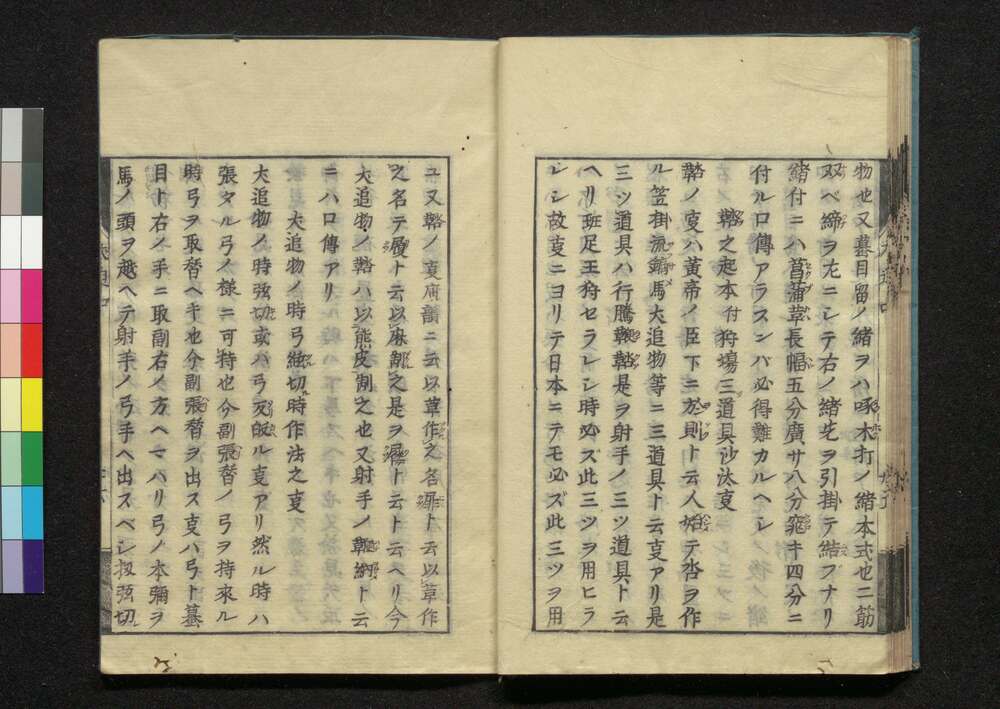 物也又蟇目留ノ緒ヲハ啄木打ノ緒本式也二筋
双ベ締ヲ左ニシテ右ノ緒先ヲ引掛テ結フナリ
緒付ニハ菖蒲革長幅五分廣サ八分窄キ四分ニ
付ル口傳アラスンバ必得難カルヘシ
鞢之起本付狩場三道具沙汰㕝
鞢ノ㕝ハ黄帝ノ臣下ニ於則ト云人始テ沓ヲ作
ル笠掛流鏑馬犬追物等ニ三道具ト云㕝アリ是
三ツ道具ハ行騰鞢是ヲ射手ノ三ツ道具ト云
ヘリ班足王狩セラレシ時必ズ此三ツヲ用ヒラ
レシ故㕝ニヨリテ日本ニテモ必ズ此三ツヲ用
ユ又鞢ノ㕝唐韻ニ云以草作之名扉ト云以草作
之名テ履ト云以麻制之是ヲ云ト云ヘリ今
犬追物ノ鞢ハ以熊皮制之也又射手ノ納ト云
ニハ口傳アリ
犬追物ノ時弓絃切時作法之㕝
犬追物ノ時弦切或ハ弓反皈ル㕝アリ然ル時ハ
張タル弓ノ様ニ可持也今副張替ノ弓ヲ持來ル
時弓ヲ取替ヘキ也今副張替ヲ出ス㕝ハ弓ト蟇
目ト右ノ手ニ取副右ノ方ヘマハリ弓ノ本彌ヲ
馬ノ頭ヲ越ヘテ射手ノ弓手ヘ出スベシ扨弦切